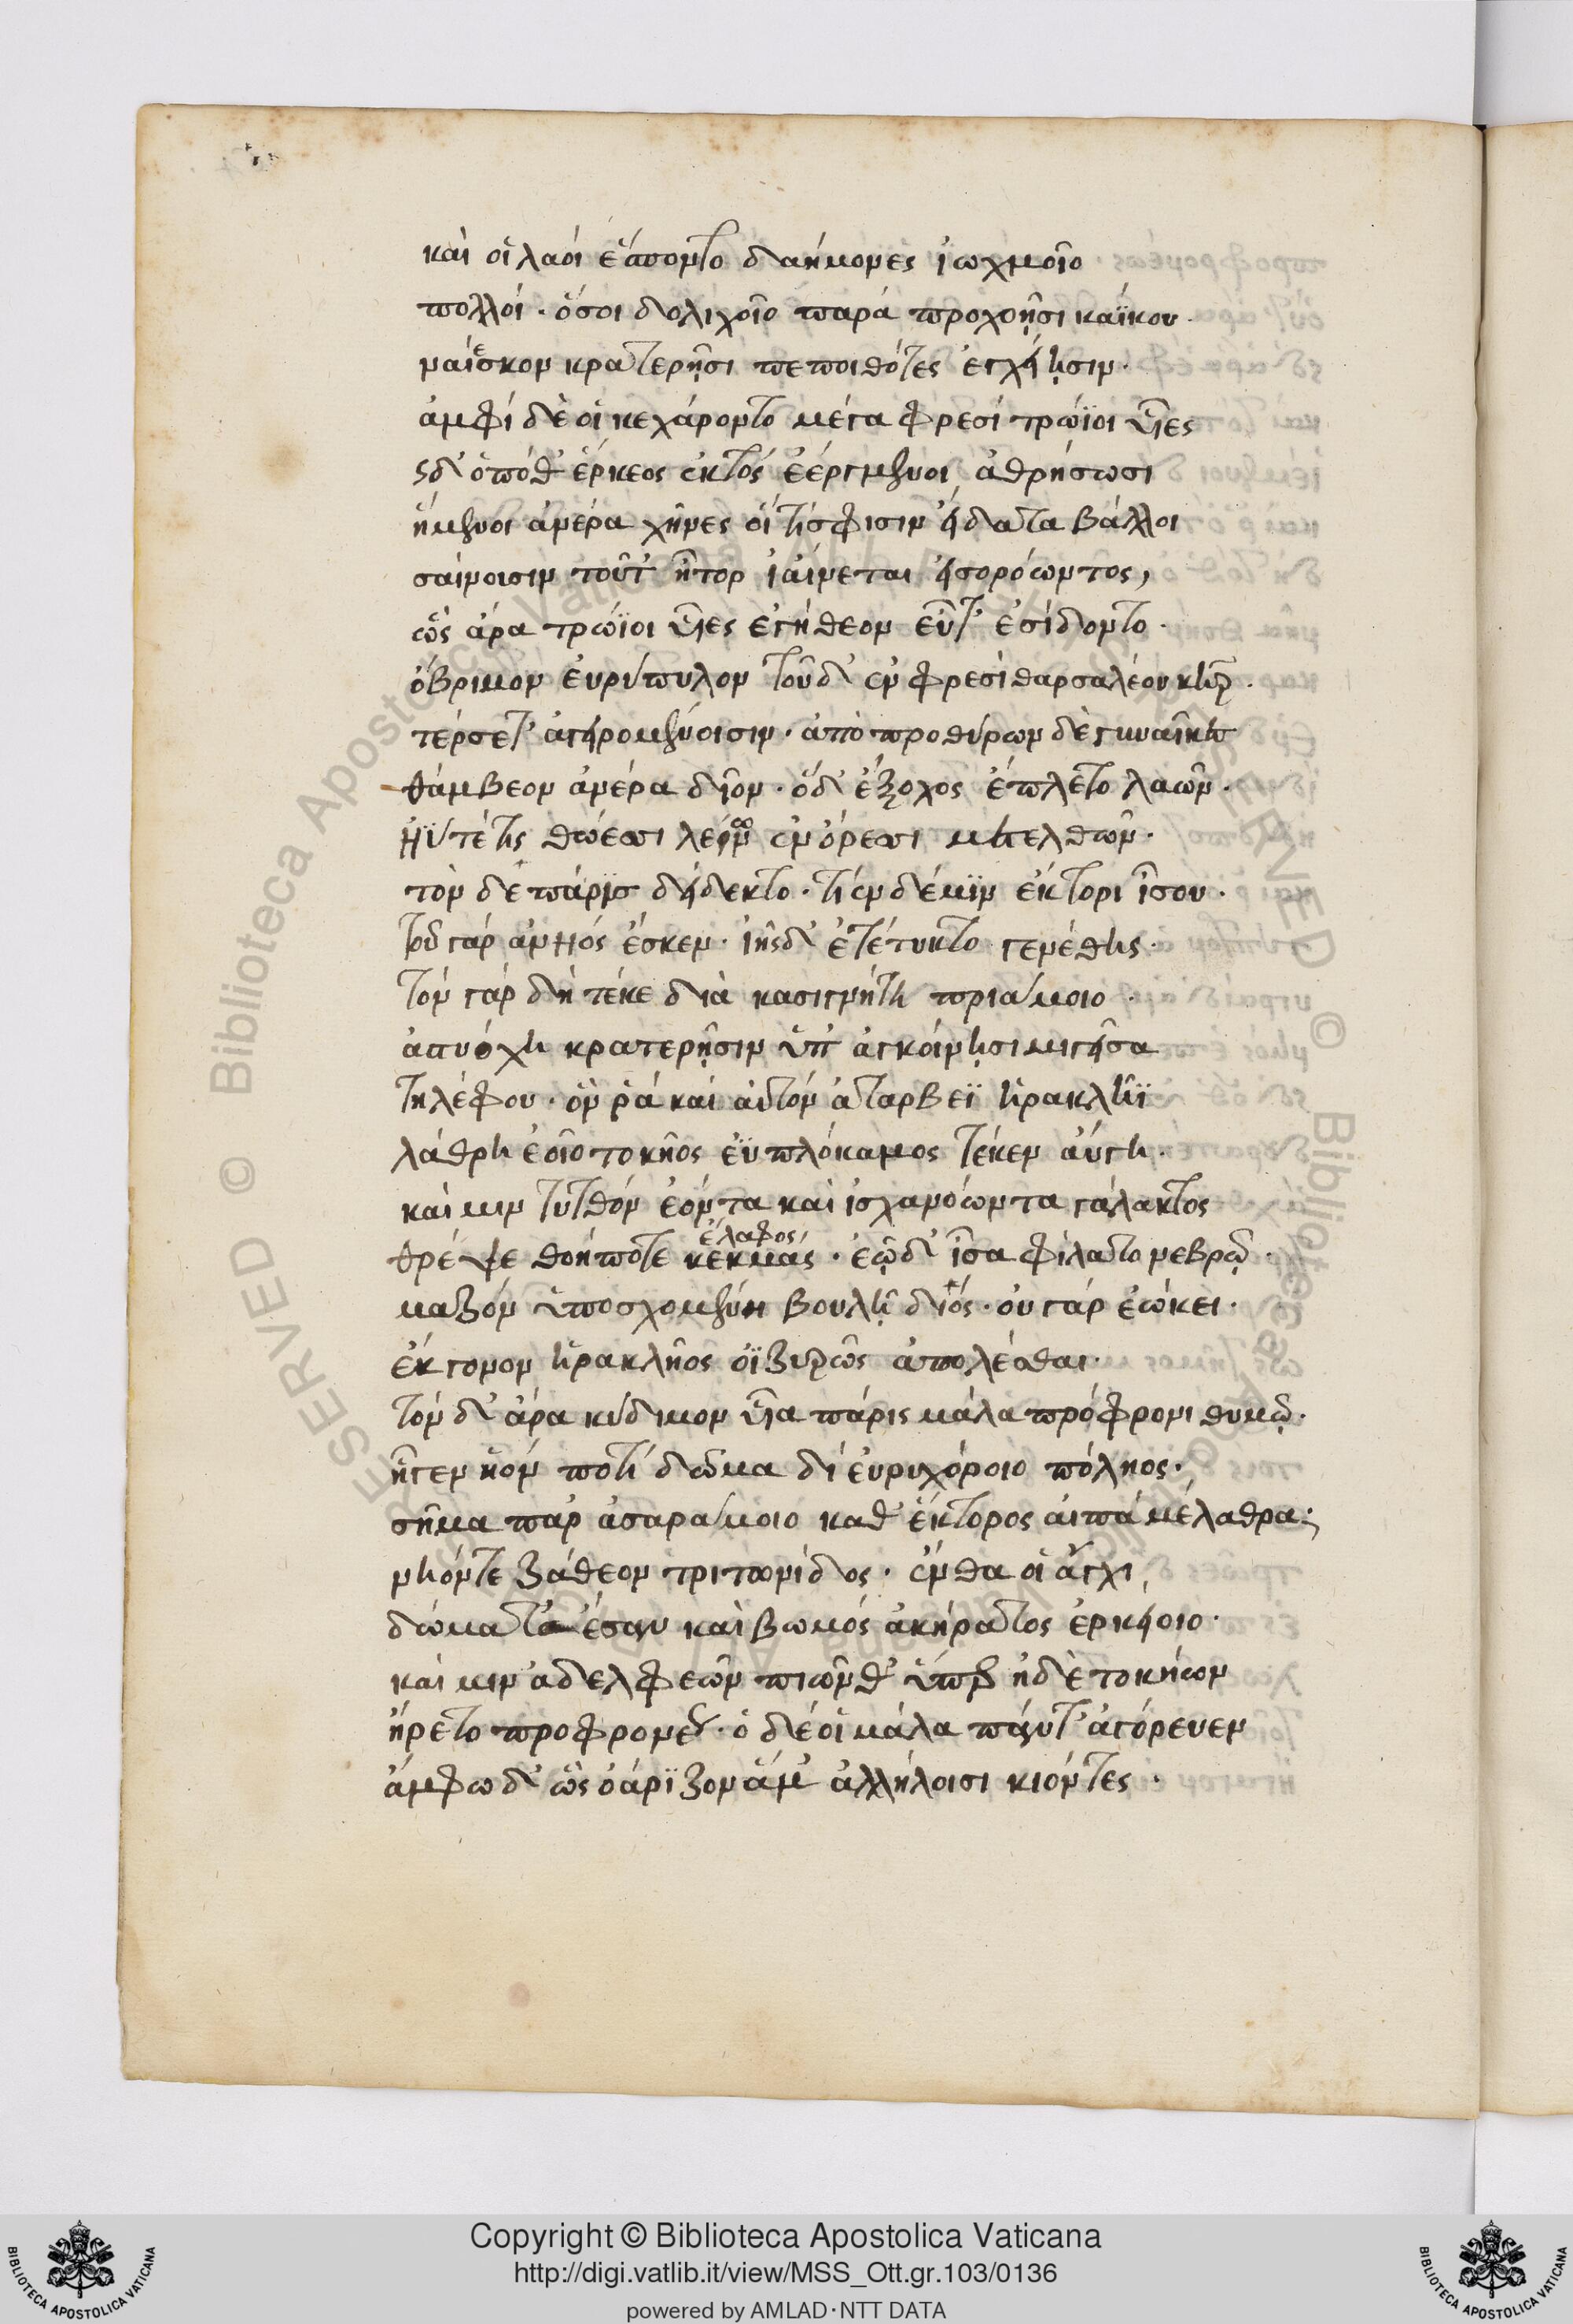 καὶ οἱ λαοί ἕπποντο δαήμονες ἰωχμοῖο
πολλοί · ὅσοι δολιχοῖο παρά προχοῇσι καΐκου ·
ναίεσκον κρατερῇσι πεποιθότες ἐγχείῃσιν ·
ἀμφί δέ οἱ κεχάροντο μέγα φρεσί τρώϊοι υἷες
ὡς δ' ὁπόθ' ἕρκεος ἐκτός ἐεργμένοι ἀθρήσωσι
ἥμενοι ἀνέρα χῆνες ὅτίσφισιν εἴδατα βάλλοι
σαίνοισιν τοῦτ' ἦτορ ἰαίνεται εἰσορόωντος,
ὣς ἄρα τρώϊοι υἷες ἐγήθεον εὖτ' ἐσίδοντο ·
ὄβριμον εὐρύπυλον τοῦ δ' ἐν φρεσὶ θαρσαλέον κῆρ ·
τέρπετ' ἀγειρομένοισιν · ἀπὸ προθύρων δὲ γυναῖκες
θάμβεον ἀνέρα δῖον · ὅδ' ἔξοχος ἔπλετο λαῶν ·
ἠΰτέτις θώεσσι λέων ἐν ὄρεσσι μετελθών ·
τὸν δέ πάρις δείδεκτο · τίεν δέ μιν ἕκτορι ἶσον ·
τοῦ γάρ ἀνεψιός ἔσκεν · ἰῆς δ' ἐτέτυκτο γενέθλης ·
τόν γάρ δὴ τέκε δῖα κασιγνήτη πριάμοιο ·
ἀστυόχη κρατερῇσιν ὑπ' ἀγκοίνῃσι μιγεῖσα
τηλέφου · ὅν ῥά καί αὐτόν ἀταρβεῖ ἡρακλῆϊ
λάθρη ἑοῖο τοκῆος ἐϋπλόκαμος τέκεν αὔγη ·
καί μιν τυτθόν ἐόντα καὶ ἰσχανόωντα γάλακτος
θρέψε θοήποτε κεκμάς · ἑῷ δ' ἶσα φίλατο νεβρῷ ·
ἔλαφος
μαζόν ὑποσχομένη βουλῇ διός · οὐ γάρ ἐῴκει ·
ἔκγονον ἡρακλῆος ὀϊζυρῶς ἀπολέσθαι ·
τόν δ' ἄρα κύδιμον υἷα πάρις μάλα πρόφρονι θυμῷ ·
ἦγεν ἑόν ποτί δῶμα δι' εὐρυχόροιο πόληος ·
σῆμα παρ' ἀσαράμοιο καθ' ἕκτορος αἰπά μέλαθρα ·
νηόντε ζάθεον τριτωνίδος · ἔνθα οἱ ἄγχι
δώματα ἔσαν καὶ βωμός ἀκήρατος ἑρκείοιο ·
καί μιν ἀδελφεῶν πιῶνθ' ὕπερ ἠδὲ τοκήων
ἤρετο προφρονέως · ὁ δέ οἱ μάλα πάντ' ἀγόρευεν
ἄμφω δ' ὣς ὀάριζον ἅμ' ἀλλήλοισι κιόντες ·
Copyright © Biblioteca Apostolica Vaticana
http://digi.vatlib.it/view/MSS_Ott.gr.103/0136
powered by AMLAD·NTT DATA